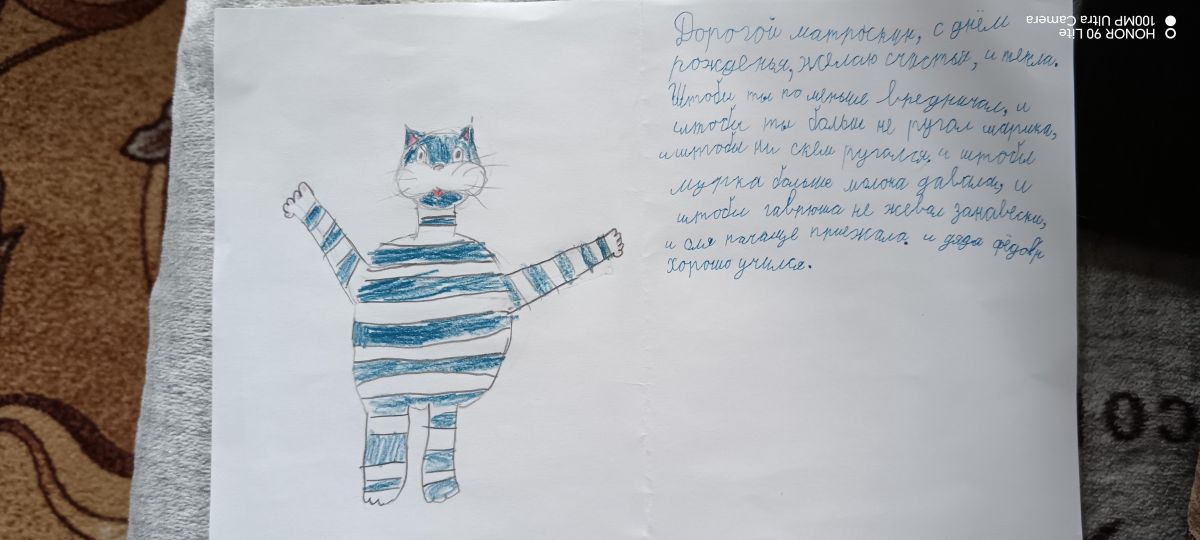 Дорогой матроскин, с днём
рожденья, желаю счастья, и тепла.
Штобы ты по меньше вредничал, и
штобы ты больше не ругал шарика,
и штобы ни скем ругался. и штобы
мурка больше молока давала, и
штобы гаврюша не жевал занавески,
и оля почаще приежала. и дядя фёдор
хорошо учился.
HONOR 90 Lite
100MP Ultra Camera